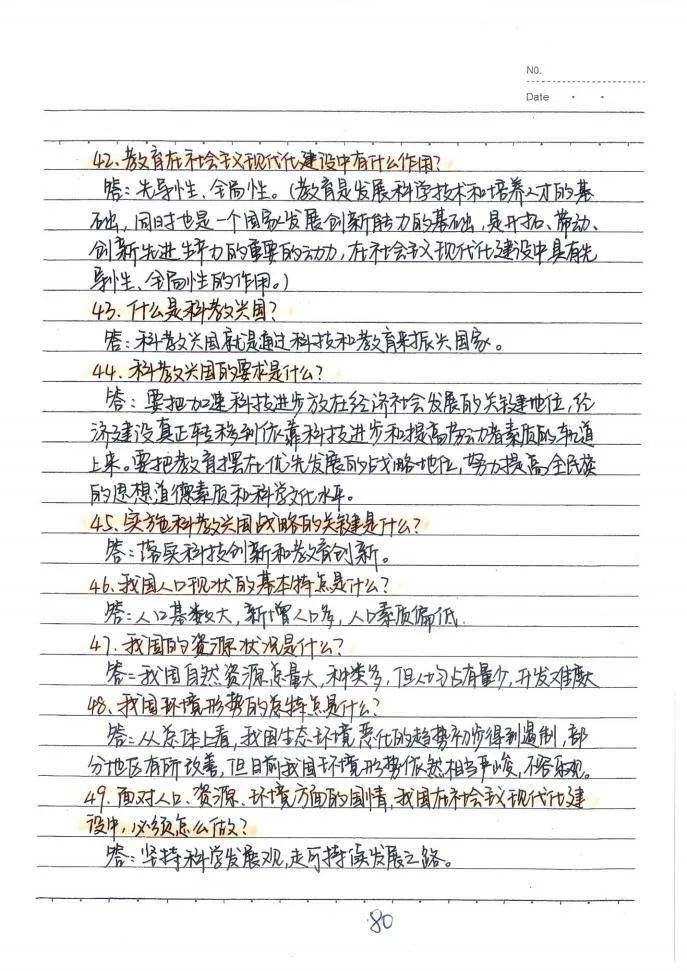 NO.
Date · ·
42.教育在社会主义现代化建设中有什么作用?
答:先导性、全局性。(教育是发展科学技术和培养人才的基
础,同时也是一个国家发展创新能力的基础,是开拓、带动、
创新先进生产力的重要的动力,在社会主义现代化建设中具有先
导性、全局性的作用。)
43.什么是科教兴国?
答:科教兴国就是通过科技和教育来振兴国家。
44.科教兴国的要求是什么?
答:要把加速科技进步放在经济社会发展的关键地位,经
济建设真正转移到依靠科技进步和提高劳动者素质的轨道
上来。要把教育摆在优先发展的战略地位,努力提高全民族
的思想道德素质和科学文化水平。
45.实施科教兴国战略的关键是什么?
答:落实科技创新和教育创新。
46.我国人口现状的基本特点是什么?
答:人口基数大,新增人口多,人口素质偏低.
47.我国的资源状况是什么?
答:我国自然资源总量大,种类多,但人均占有量少,开发难度大
48.我国环境形势的总特点是什么?
答:从总体上看,我国生态环境恶化的趋势初步得到遏制,部
分地区有所改善,但目前我国环境形势依然相当严峻,不容乐观。
49.面对人口、资源、环境方面的国情,我国在社会主义现代化建
设中,必须怎么做?
答:坚持科学发展观,走可持续发展之路。
80